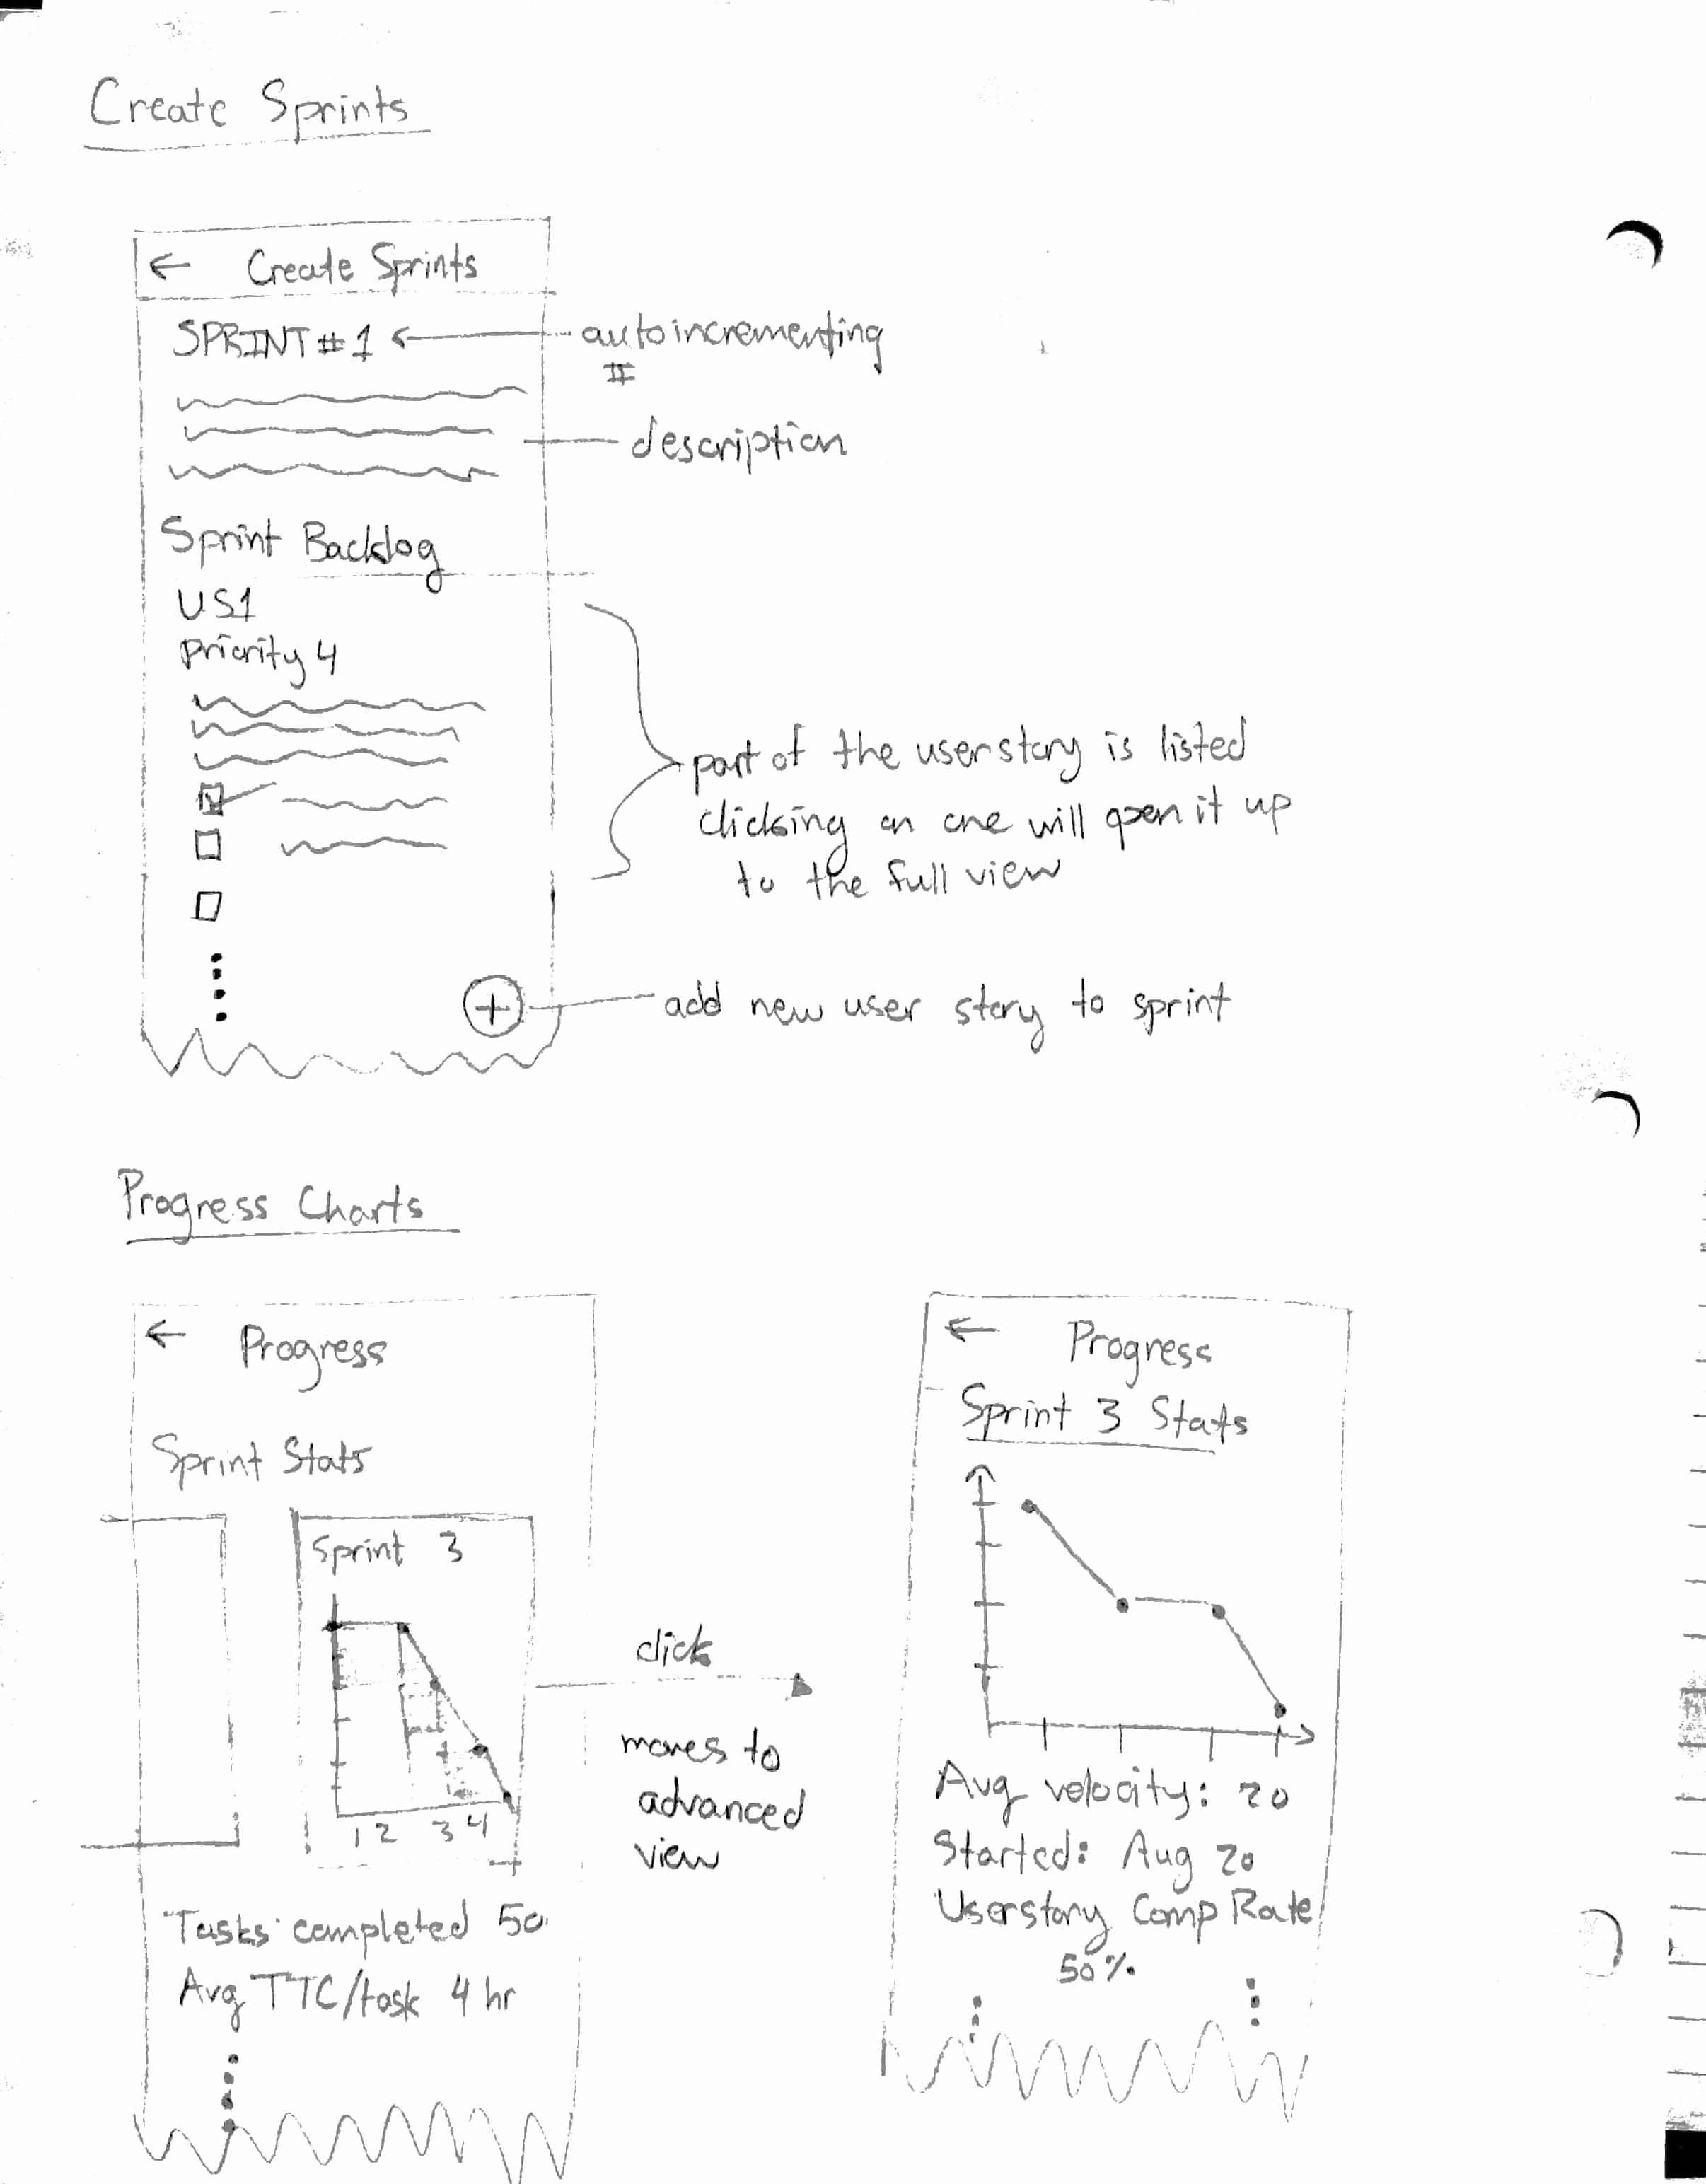 Create Sprints
← Create Sprints
SPRINT #1
autoincrementing
#
description
Sprint Backlog
US1
priority 4
part of the userstory is listed
clicking on one will open it up
to the full view
+
add new user story to sprint
Progress Charts
← Progress
Sprint Stats
Sprint 3
1 2 3 4
Tasks completed 50
Avg TTC/task 4 hr
click
moves to
advanced
view
← Progress
Sprint 3 Stats
Avg velocity: 20
Started: Aug 20
Userstory Comp Rate
50%